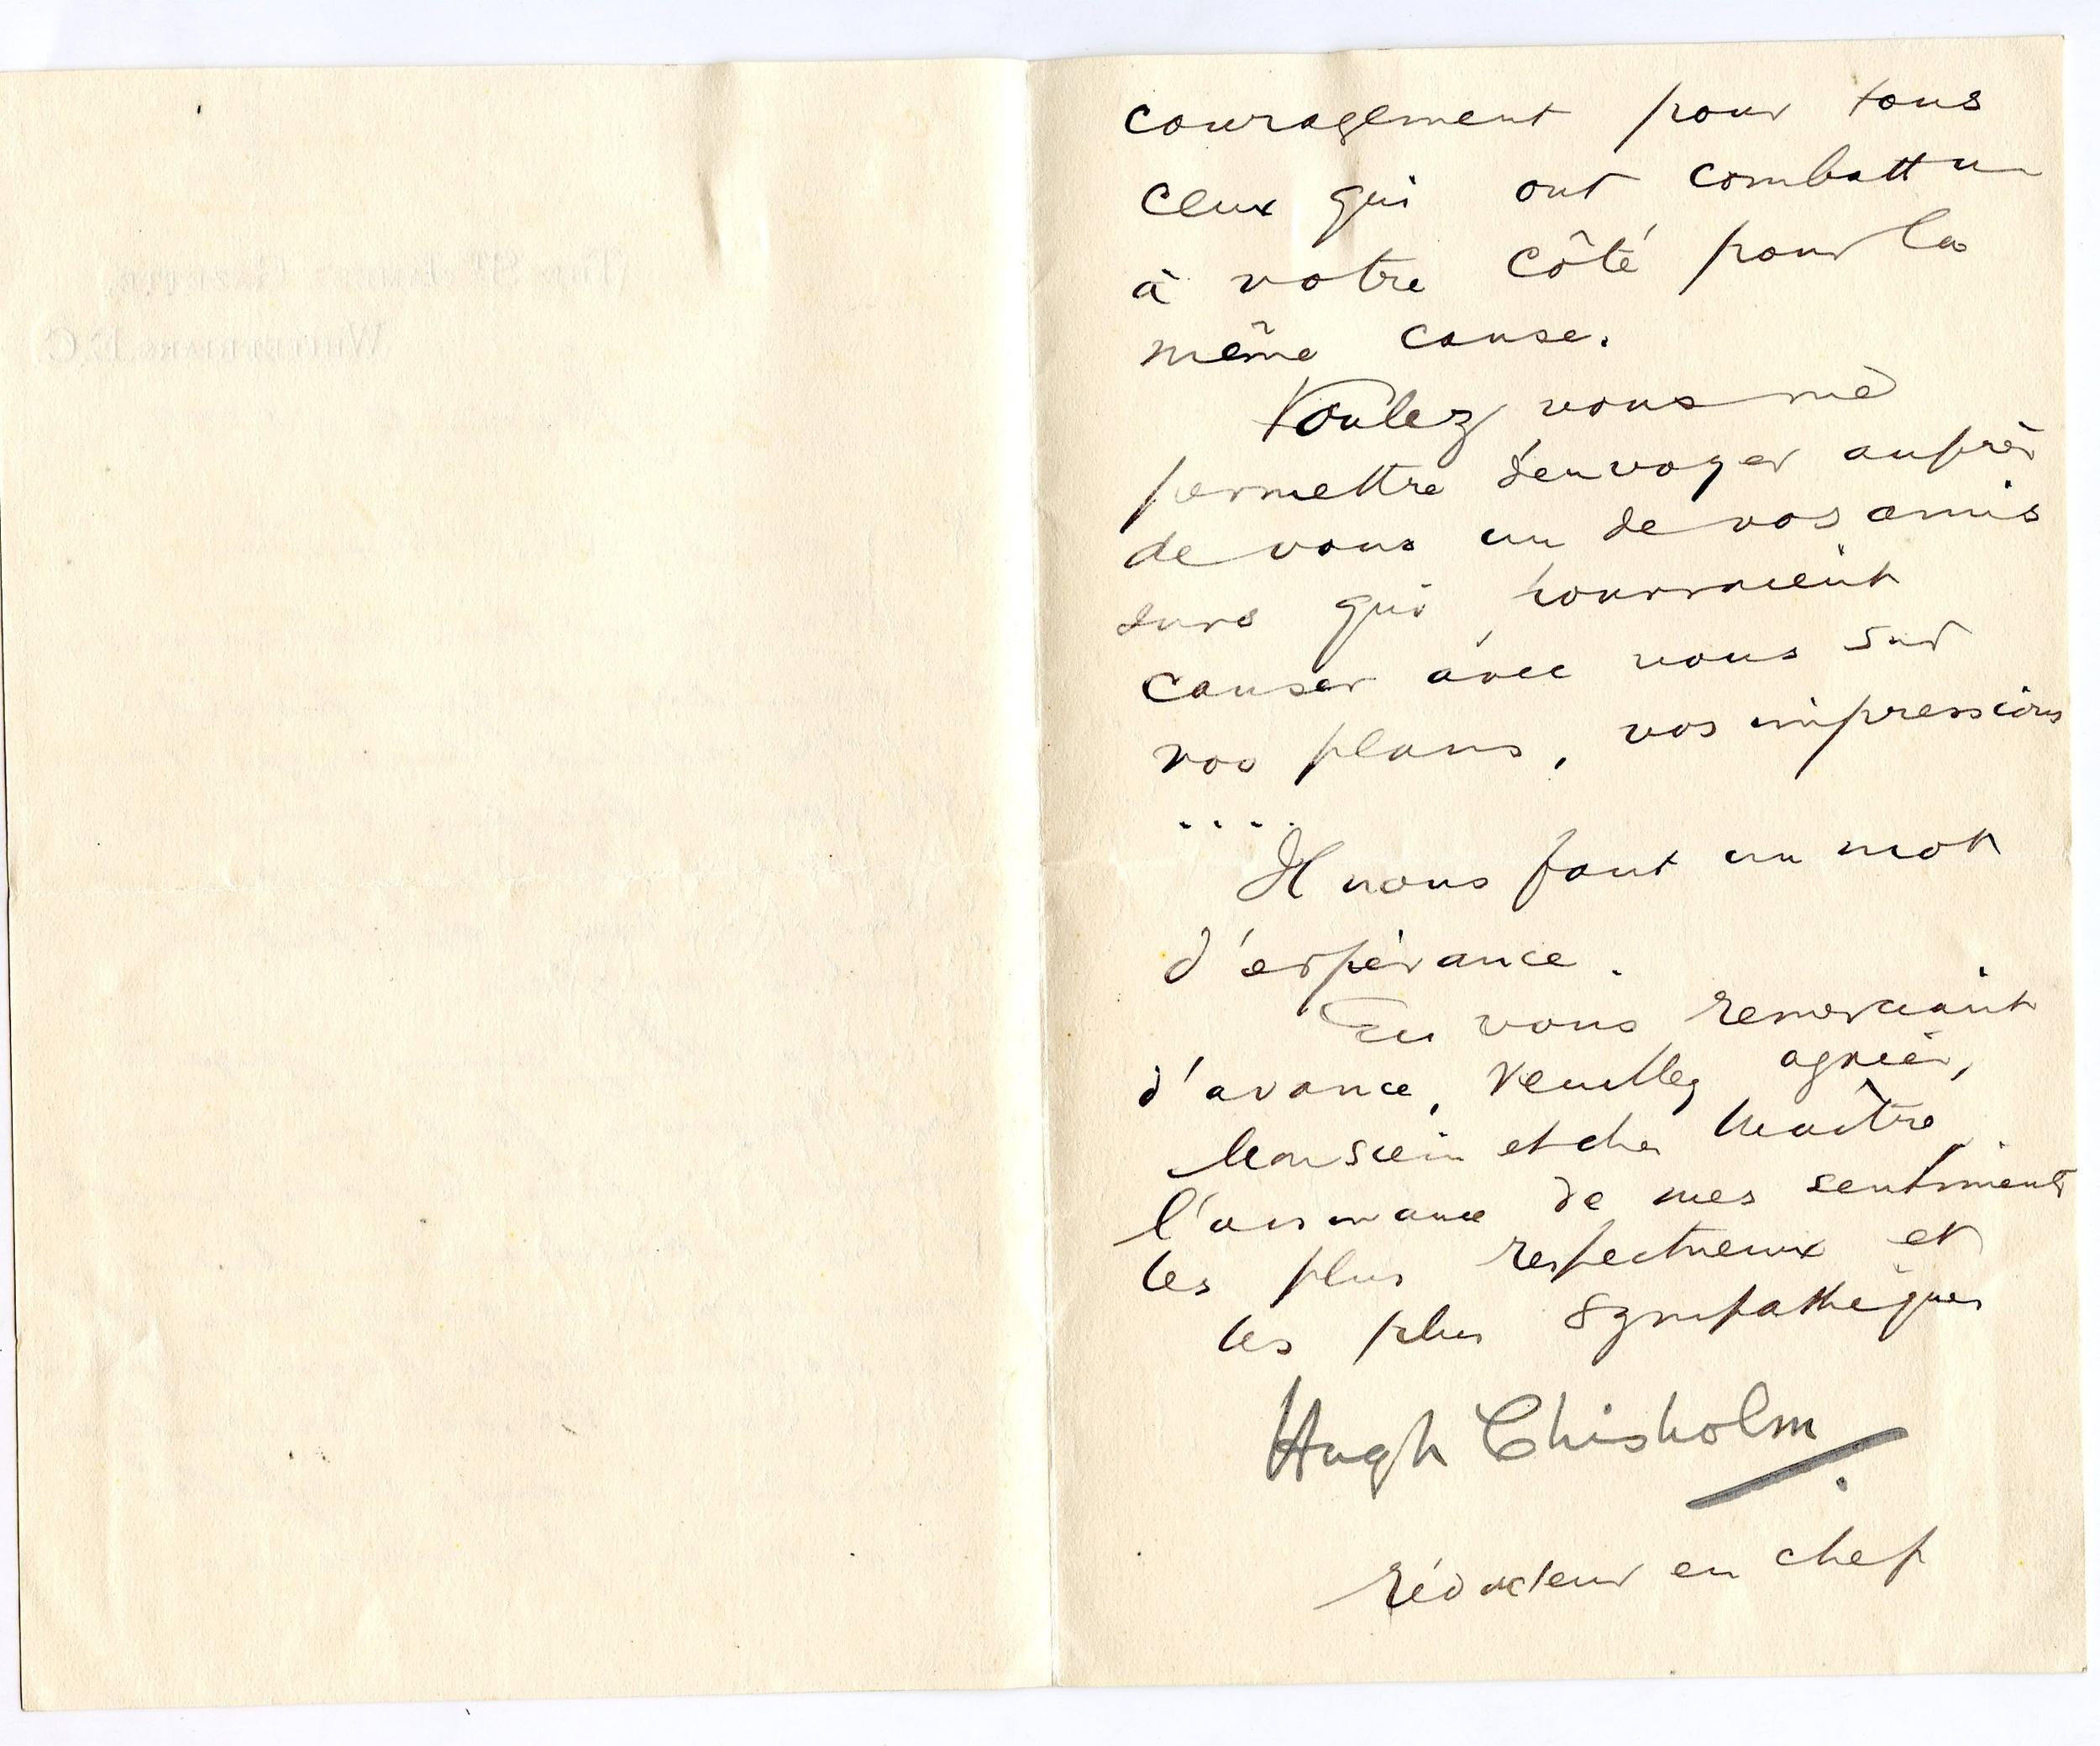 The St James's Gazette,
Whitefriars, E.C.
couragement pour tous
ceux qui ont combattu
à votre côté pour la
même cause.
Voulez vous me
permettre d'envoyer auprès
de vous un de vos amis
surs qui pourraient
causer avec vous sur
vos plans, vos impressions
....
Il nous faut un mot
d'espérance.
En vous remerciant
d'avance, veuillez agréer,
Monsieur et cher Maître,
l'assurance de mes sentiments
les plus respectueux et
les plus sympathiques
Hugh Chisholm
rédacteur en chef